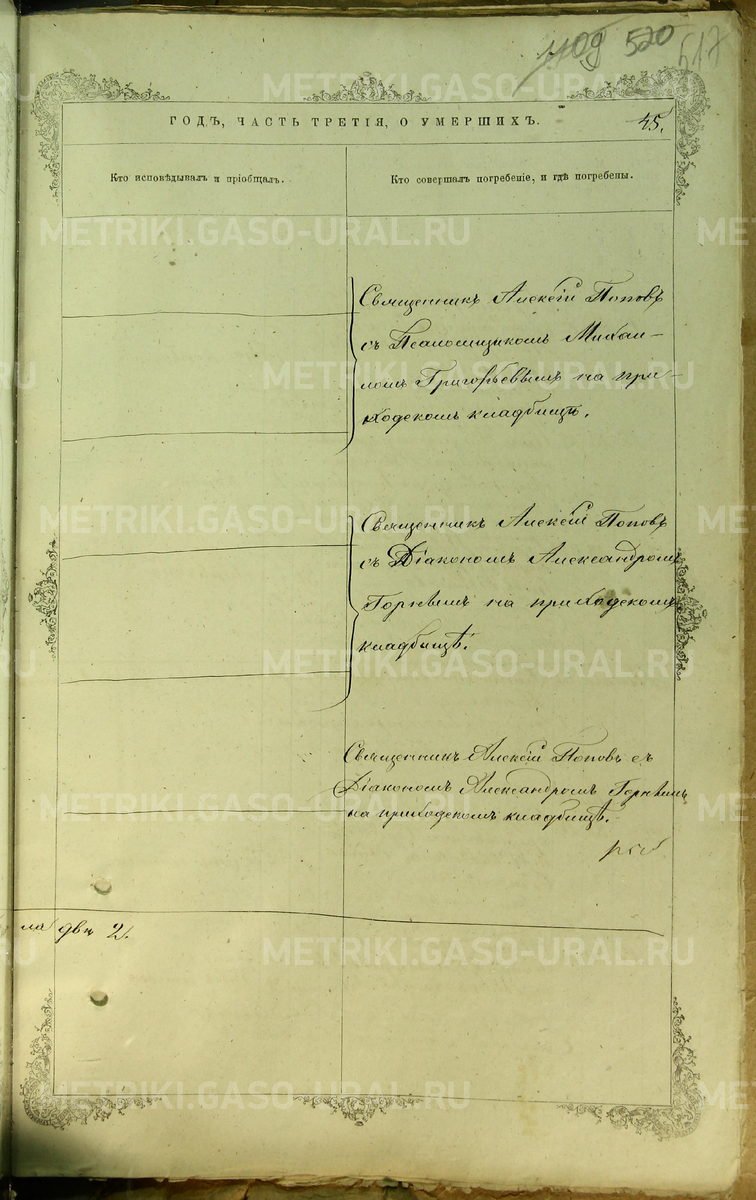 409 520 517
ГОДЪ, ЧАСТЬ ТРЕТІЯ, О УМЕРШИХЪ. 45.
Кто исповѣдывалъ и пріобщалъ.
Кто совершалъ погребеніе, и гдѣ погребены.
Священникъ Алексій Поповъ
съ Псаломщикомъ Михаи-
ломъ Григорьевымъ на при-
ходскомъ кладбищѣ.
Священникъ Алексій Поповъ
съ Діакономъ Александромъ
Горнымъ на приходскомъ
кладбищѣ.
Священникъ Алексій Поповъ съ
Діакономъ Александромъ Горнымъ
на приходскомъ кладбищѣ.
ла двѣ 2.
METRIKI.GASO-URAL.RU